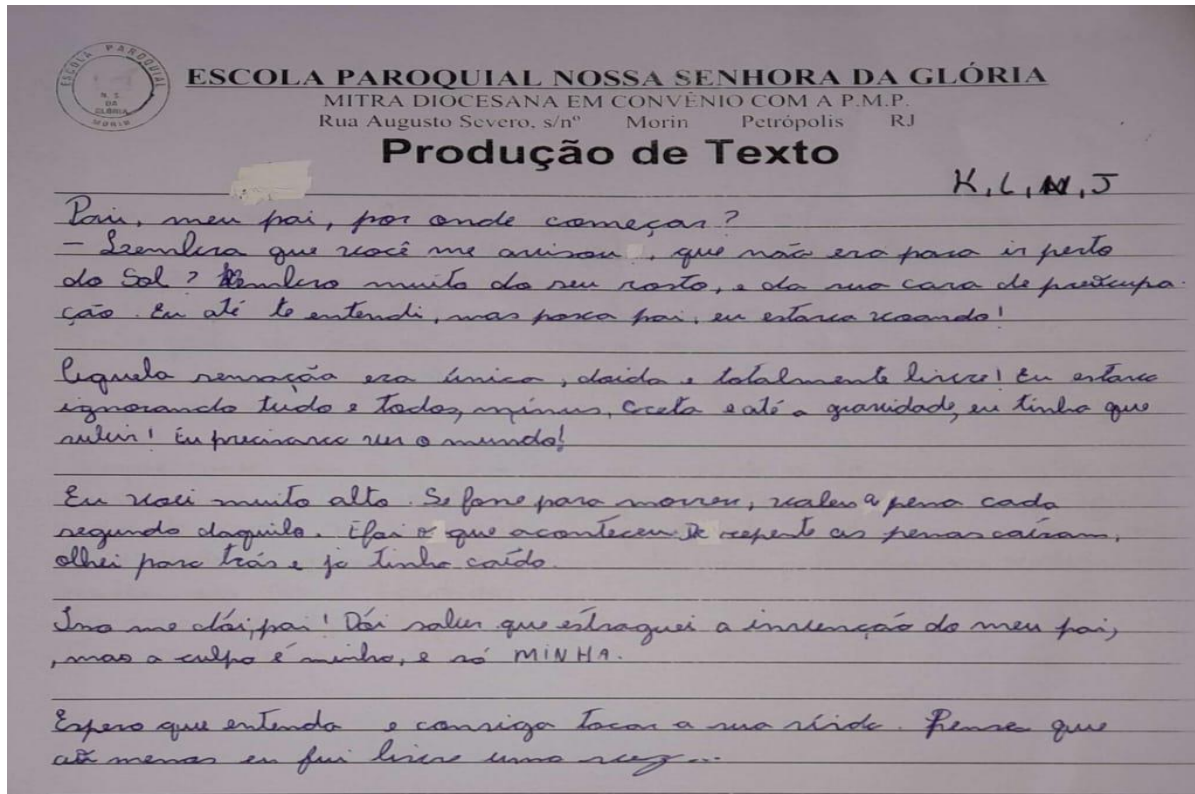 ESCOLA PAROQUIAL
N. S.
DA
GLÓRIA
MORIN
ESCOLA PAROQUIAL NOSSA SENHORA DA GLÓRIA
MITRA DIOCESANA EM CONVÊNIO COM A P.M.P.
Rua Augusto Severo, s/nº Morin Petrópolis RJ
Produção de Texto
K, L, N, J
Pai, meu pai, por onde começar?
- Lembra que você me avisou, que não era para ir perto
do Sol? lembro muito do seu rosto, e da sua cara de preocupa
ção. Eu até te entendi, mas poxa pai, eu estava voando!
Aquela sensação era única, doida e totalmente livre! Eu estava
ignorando tudo e todos, minus, Creta e até a gravidade, eu tinha que
subir! Eu precisava ver o mundo!
Eu voei muito alto. Se fosse para morrer, valeu a pena cada
segundo daquilo. E foi o que aconteceu De repente as penas caíram,
olhei para trás e já tinha caído.
Isso me dói, pai! Dói saber que estraguei a invenção do meu pai,
, mas a culpa é minha, e só MINHA.
Espero que entenda e consiga tocar a sua vida. Pense que
ao menos eu fui livre uma vez...